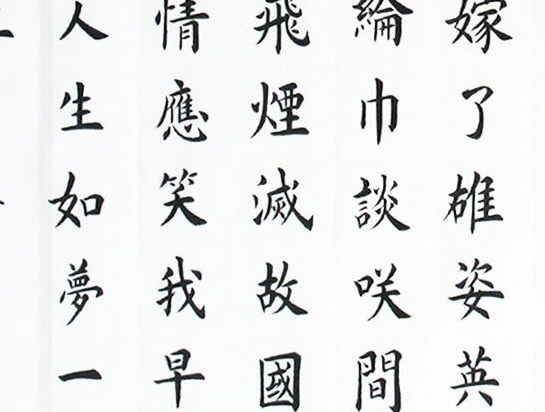 嫁了雄姿英
綸巾談咲間
飛煙滅故國
情應笑我早
人生如夢一